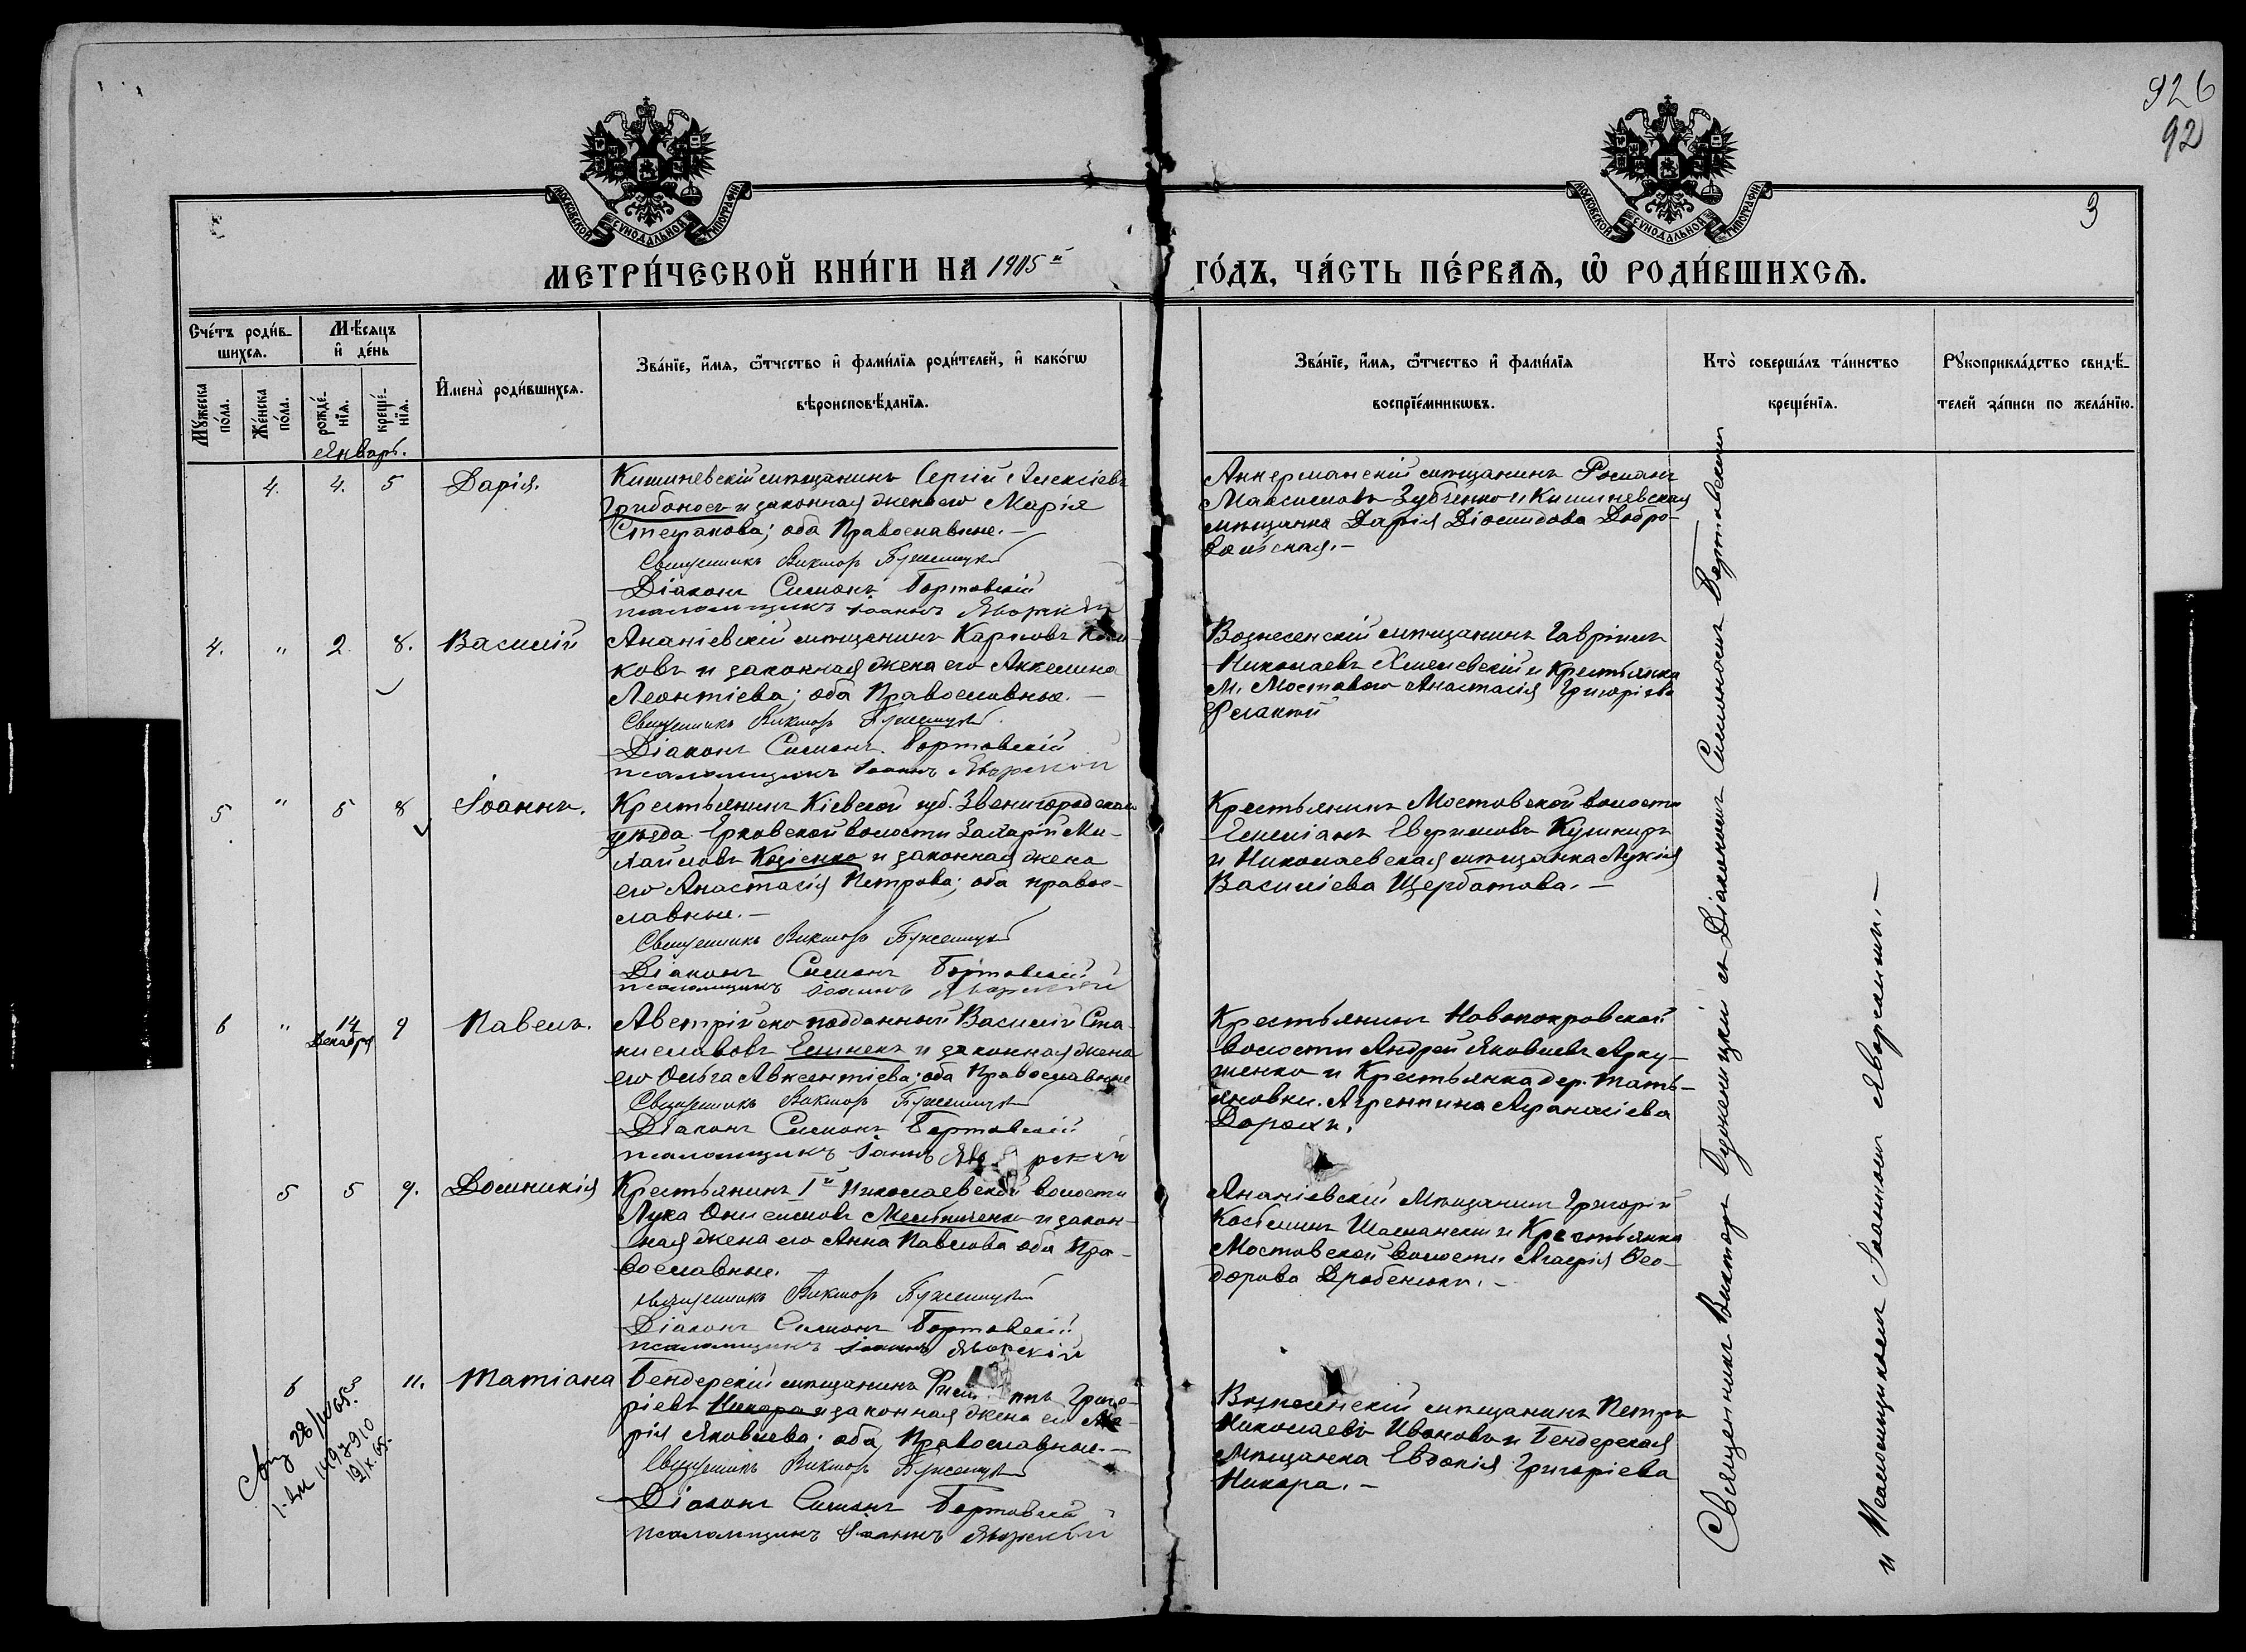 926
92
3
МОСКОВСКОЙ СѴНОДАЛЬНОЙ ТИПОГРАФІИ
МОСКОВСКОЙ СѴНОДАЛЬНОЙ ТИПОГРАФІИ
МЕТРИ́ЧЕСКОЙ КНИ́ГИ НА 1905й ГО́ДЪ, ЧА́СТЬ ПЕ́РВАЯ, Ѽ РОДИ́ВШИХСЯ.
Сче́тъ роди́в-
шихся.
Мѣ́сяцъ
и҆ де́нь
Мꙋ́жеска
по́ла.
Же́нска
по́ла.
рожде́-
нїя.
креще́-
нїя.
И҆мена̀ роди́вшихся.
Зва́нїе, и҆́мя, ѻ҆́тчество и҆ фами́лїя роди́телей, и҆ како́гѡ
вѣроисповѣ́данїя.
Зва́нїе, и҆́мя, ѻ҆́тчество и҆ фами́лїя
воспрїе́мникѡвъ.
Кто̀ соверша́лъ та́инство
креще́нїя.
Рꙋкоприкла́дство свидѣ́-
телей за́писи по жела́нїю.
Январь.
4. 4. 5 Дарія.
Кишиневскій мѣщанинъ Сергій Алексіевъ
Грибоносъ и законная жена его Марія
Стефанова; оба Православные.-
Священникъ Викторъ
Діаконъ Симонъ Бортовскій
псаломщикъ Іоаннъ Яворскій
Аккерманскій мѣщанинъ Романъ
Максимовъ Зубченко и Кишиневская
мѣщанка Дарія Діомидова Добро-
4. " 2 8. Василій
Ананіевскій мѣщанинъ Карповъ
ковъ и законная жена его Акилина
Леонтіева; оба Православные.-
Священникъ Викторъ
Діаконъ Симонъ Бортовскій
псаломщикъ Іоаннъ Яворскій
Вознесенскій мѣщанинъ Гавріилъ
Николаевъ Хмелевскій и Крестьянка
м. Мостового Анастасія Григоріева
5 " 5 8 Іоаннъ.
Крестьянинъ Кіевской губ. Звенигородскаго
уѣзда Ерковской волости Захарій Ми-
хайловъ Козіенко и законная жена
его Анастасія Петрова; оба право-
славные.-
Священникъ Викторъ
Діаконъ Симонъ Бортовскій
псаломщикъ Іоаннъ Яворскій
Крестьянинъ Мостовской волости
Емиліанъ Евфимовъ Кушниръ
и Николаевская мѣщанка Лукія
Василіева Щербатова.-
6 " 14 Декабря 9 Павелъ.
Австрійско подданный Василій Ста-
ниславовъ Елинекъ и законная жена
его Ольга Авксентіева; оба Православные
Священникъ Викторъ
Діаконъ Симонъ Бортовскій
псаломщикъ Іоаннъ Яворскій
Крестьянинъ Новопокровской
волости Андрей Яковлевъ Арку-
шенко и Крестьянка дер. Тать-
яновки. Агрепина Афанасіева
5 5 9. Домникія
Крестьянинъ Iй Николаевской волости
Лука Онисимовъ Мельниченко и закон-
ная жена его Анна Павлова оба Пра-
вославные.
Священникъ Викторъ
Діаконъ Симонъ Бортовскій
псаломщикъ Іоаннъ Яворскій
Ананіевскій Мѣщанинъ Григорій
Косьминъ Шаманскій и Крестьянка
Мостовской волости Агафія Ѳео-
дорова Дробенюкъ.-
6 11. Татіана
Бендерскій мѣщанинъ Григо-
ріевъ Никора и законная жена его Ма-
рія Яковлева; оба Православные.-
Священникъ Викторъ
Діаконъ Симонъ Бортовскій
псаломщикъ Іоаннъ Яворскій
Вознесенскій мѣщанинъ Петръ
Николаевъ Ивановъ и Бендерская
Мѣщанка Евдокія Григоріева
Никора.-
Священникъ Викторъ съ Діакономъ Симономъ Бортовскимъ
и Псаломщикомъ Іоанномъ Яворскимъ.-